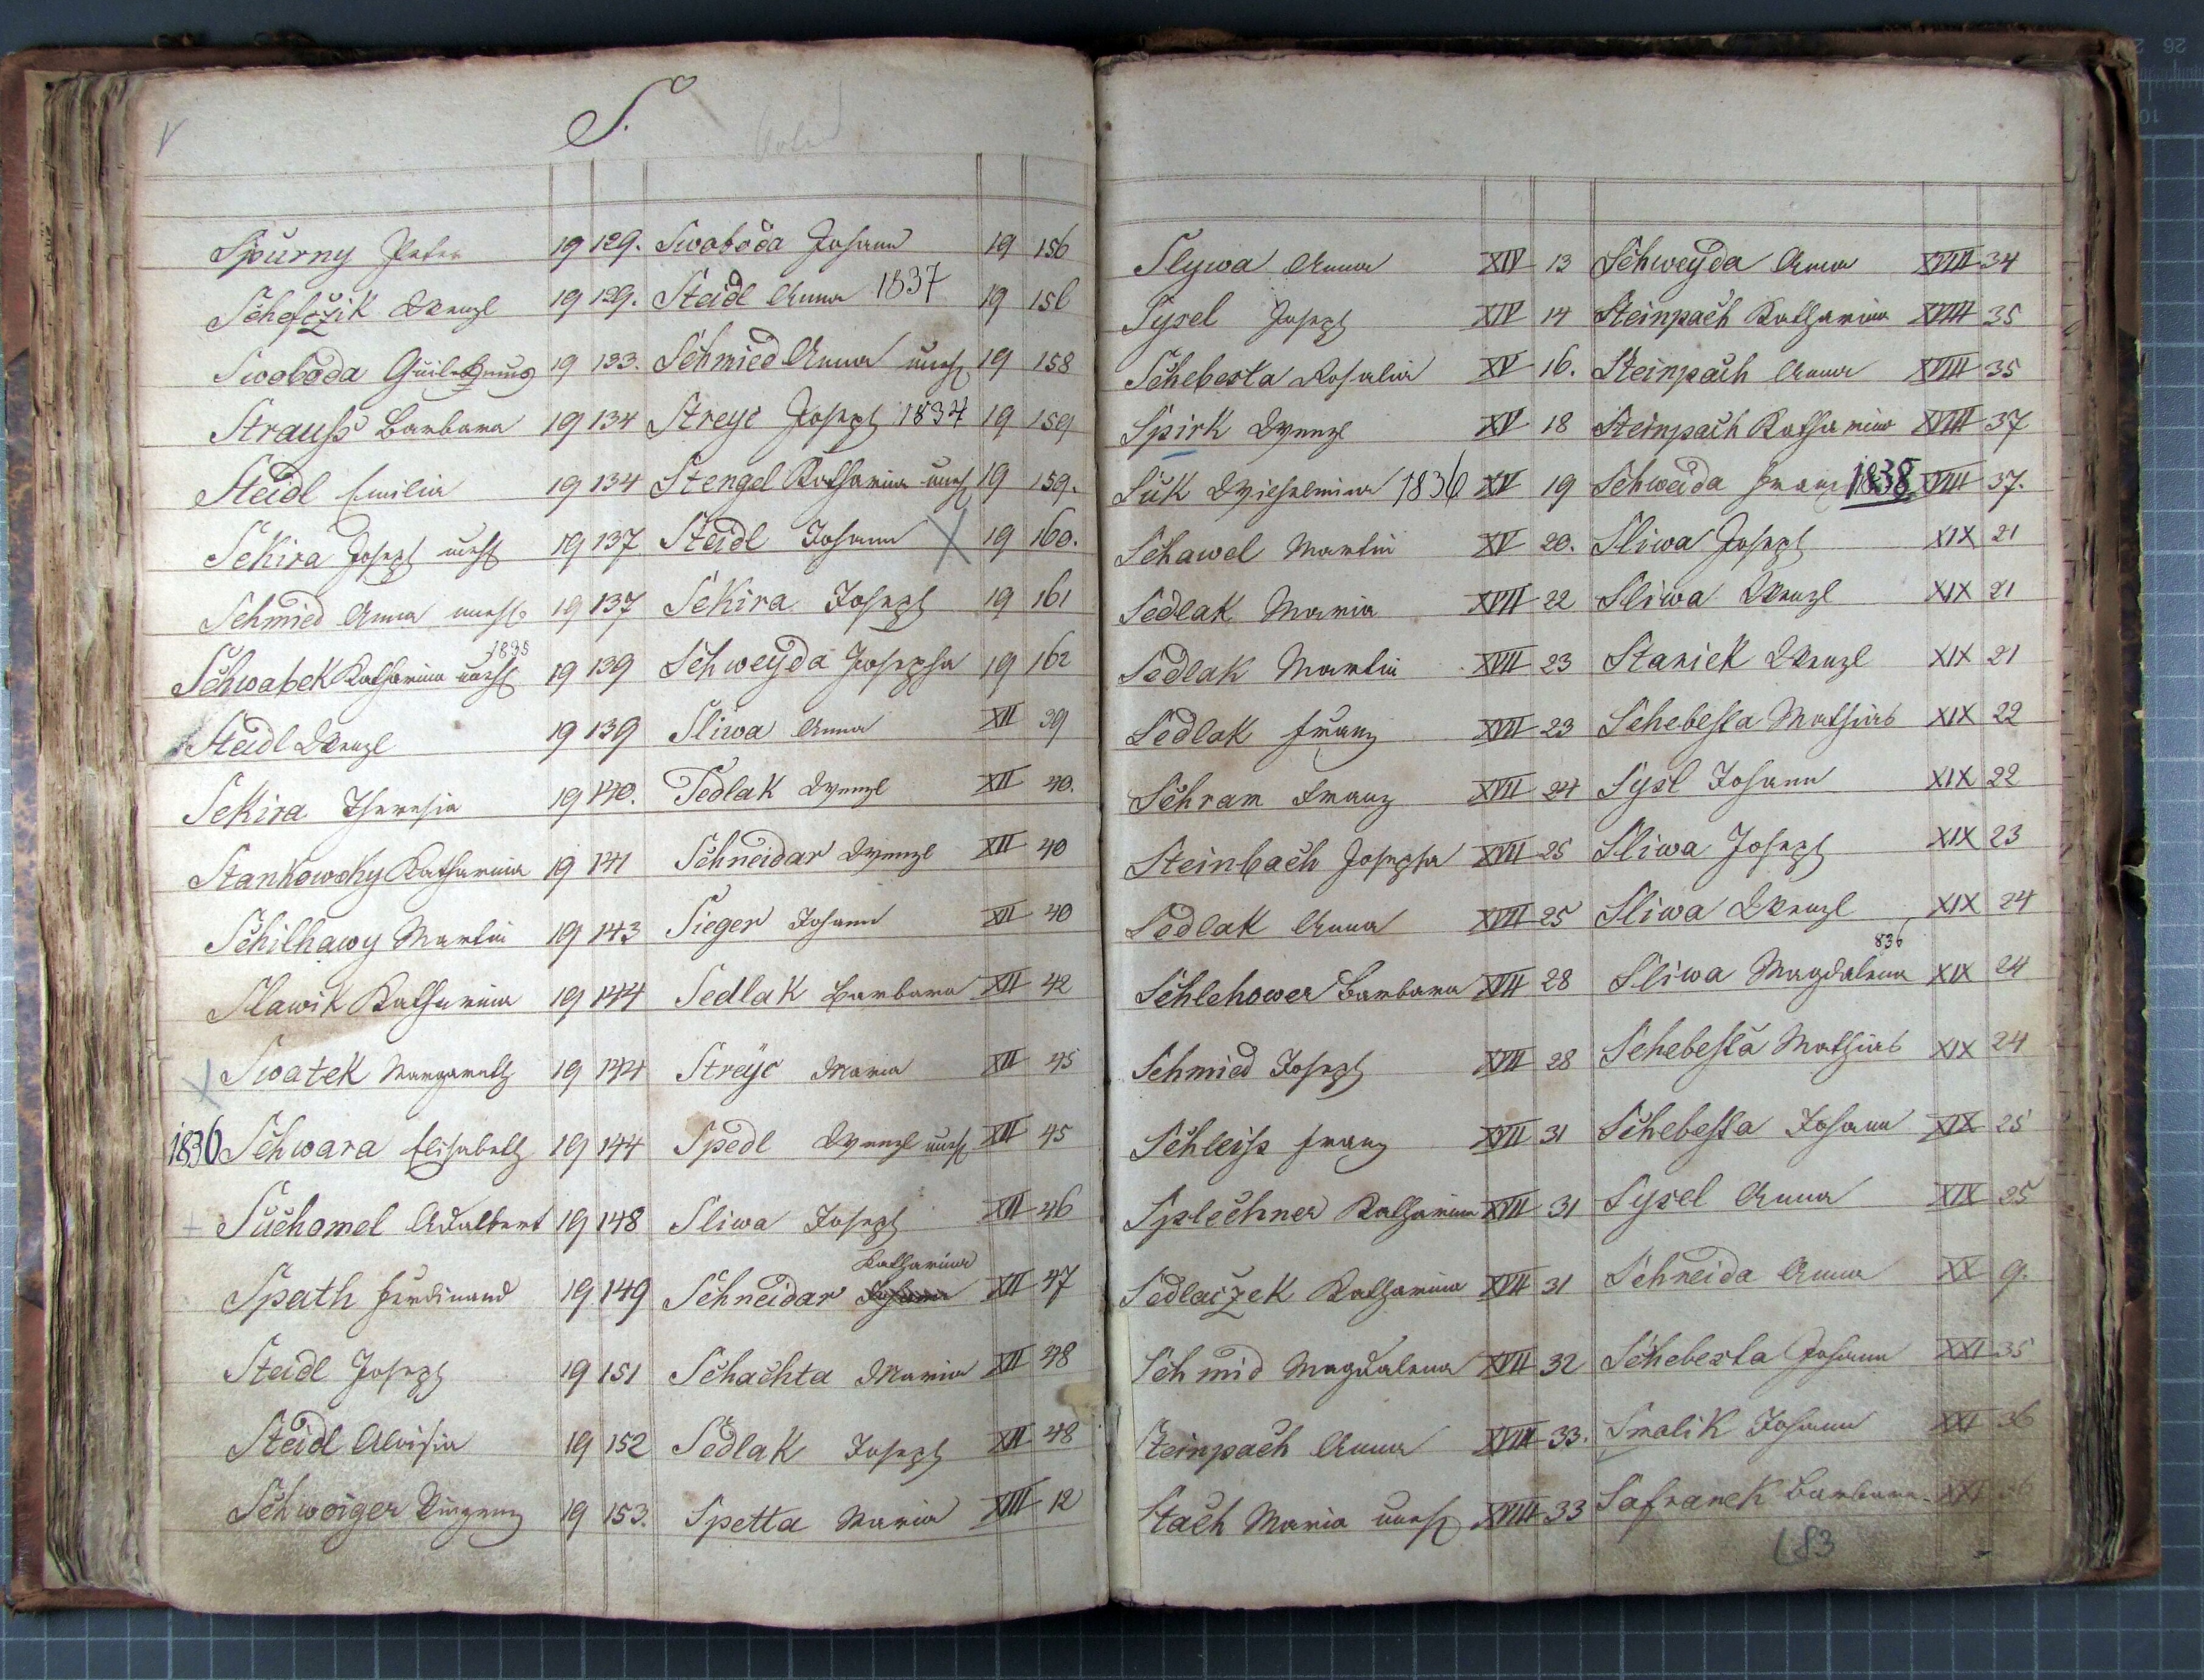 S.
Spurny Peter 19 129.
Schefczik Wenzl 19 129.
Swoboda Guilelmus 19 133.
Strauss Barbara 19 134
Steidl Emilia 19 134
Sekira Joseph unehl 19 137
Schmied Anna unehl 19 137
Schwabek Katharina unehl 1835 19 139
Steidl Wenzl 19 139
Sekira Theresia 19 140.
Stankowsky Katharina 19 141
Schilhawy Martin 19 143
Slawik Katharina 19 144
Swatek Margareth 19 144
1836 Schwara Elisabeth 19 144
Suchomel Adalbert 19 148
Spath Ferdinand 19 149
Steidl Joseph 19 151
Steidl Aloisia 19 152
Schweiger Vinzenz 19 153.
Swoboda Johann 19 156
Steidl Anna 1837 19 156
Schmied Anna unehl 19 158
Streyc Joseph 1834 19 159
Stengel Katharina unehl 19 159.
Steidl Johann X 19 160.
Sekira Joseph 19 161
Schweyda Josepha 19 162
Sliwa Anna XII 39
Sedlak Wenzl XII 40.
Schneidar Wenzl XII 40
Sieger Johann XII 40
Sedlak Barbara XII 42
Streyc Maria XII 45
Spedl Wenzl unehl XII 45
Sliwa Joseph XII 46
Katharina
Schneidar XII 47
Schachta Maria XII 48
Sedlak Joseph XII 48
Spetta Maria XIII 12
Slywa Anna XIV 13
Sysel Joseph XIV 14
Schebesta Rosalia XV 16.
Spirk Wenzl XV 18
Suk Wilhelmina 1836 XV 19
Schawel Martin XV 20.
Sedlak Maria XVII 22
Sedlak Martin XVII 23
Sedlak Franz XVII 23
Schram Franz XVII 24
Steinbach Josepha XVII 25
Sedlak Anna XVII 25
Schlehower Barbara XVII 28
Schmied Joseph XVII 28
Schleiss Franz XVII 31
Splechner Katharina XVII 31
Sedlaczek Katharina XVII 31
Schmid Magdalena XVII 32
Steinpach Anna XVIII 33.
Stach Maria unehl XVIII 33
Schweyda Anna XVIII 34
Steinpach Katharina XVIII 35
Steinpach Anna XVIII 35
Steinpach Katharina XVIII 37
Schweida Franz 1838 XVIII 37.
Sliwa Joseph XIX 21
Sliwa Wenzl XIX 21
Stariek Wenzl XIX 21
Schebesta Mathias XIX 22
Sysl Johann XIX 22
Sliwa Joseph XIX 23
Sliwa Wenzl XIX 24
836
Sliwa Magdalena XIX 24
Schebesta Mathias XIX 24
Schebesta Johann XIX 25
Sysel Anna XIX 25
Schneida Anna XX 9.
Schebesta Johann XXI 35
Smalik Johann XXI 36
Safranek Barbara XXI 36
183